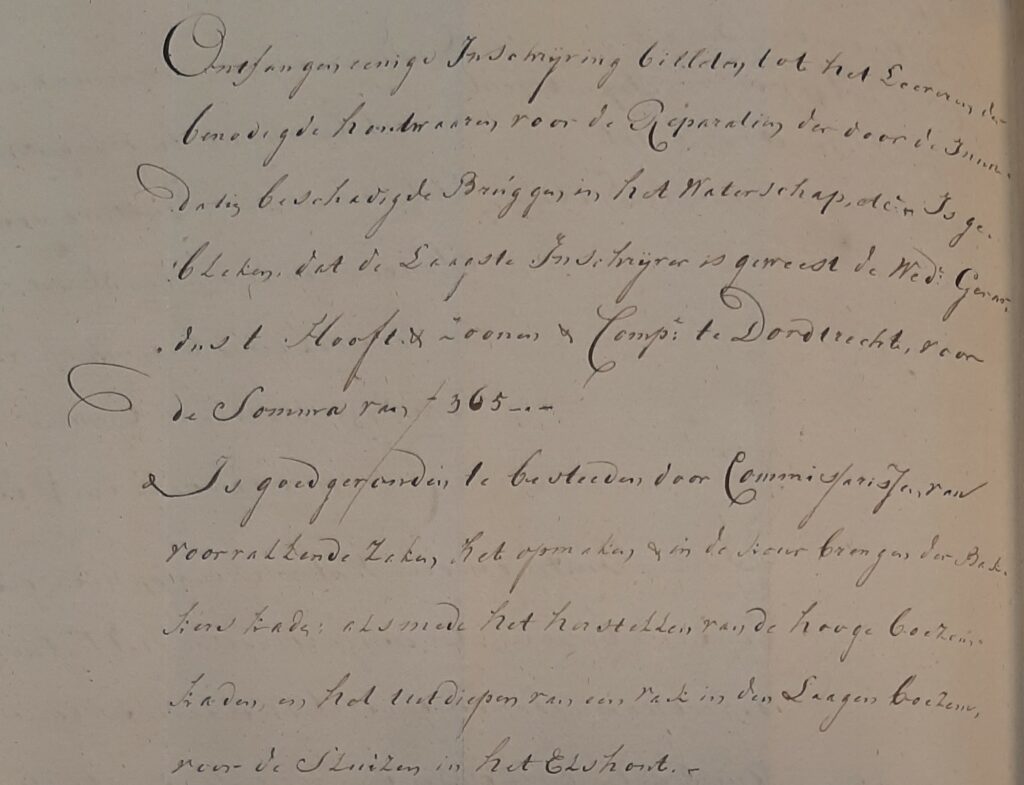 Ontfangen eenige Inschrijving billetten tot het Leeveren der
benodigde houtwaaren voor de Reparatien der door de Innun-
datie beschadigde Bruggen in het Waterschap, des Is ge-
bleken, dat de Laagste Inschrijver is geweest de Wed: Gerar-
dus t Hooft & Zoonen & Comp: te Dordtrecht, voor
de Somma van ƒ 365 -.-
& Is goedgevonden te besteeden door Commissarissen van
voorvallende Zaken, het opmaken & in de keur brengen der Bak-
kers kade: alsmede het herstellen van de hooge boezem-
kaden, en het uitdiepen van een vak in den Laagen boezem,
voor de Sluizen in het Elshout. -